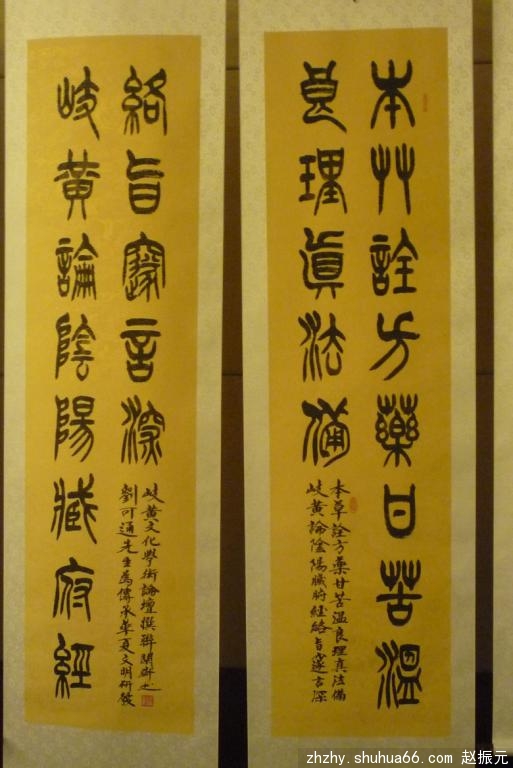 本艸詮方藥甘苦溫
良理眞法備
本草詮方藥甘苦溫良理真法備
岐黃論陰陽臟腑經絡旨邃言深
岐黃論陰陽臧府經
絡旨邃言深
劉可通先生為傳承華夏文明研發
岐黃文化學術論壇撰聯
zhzhy.shuhua66.com 赵振元